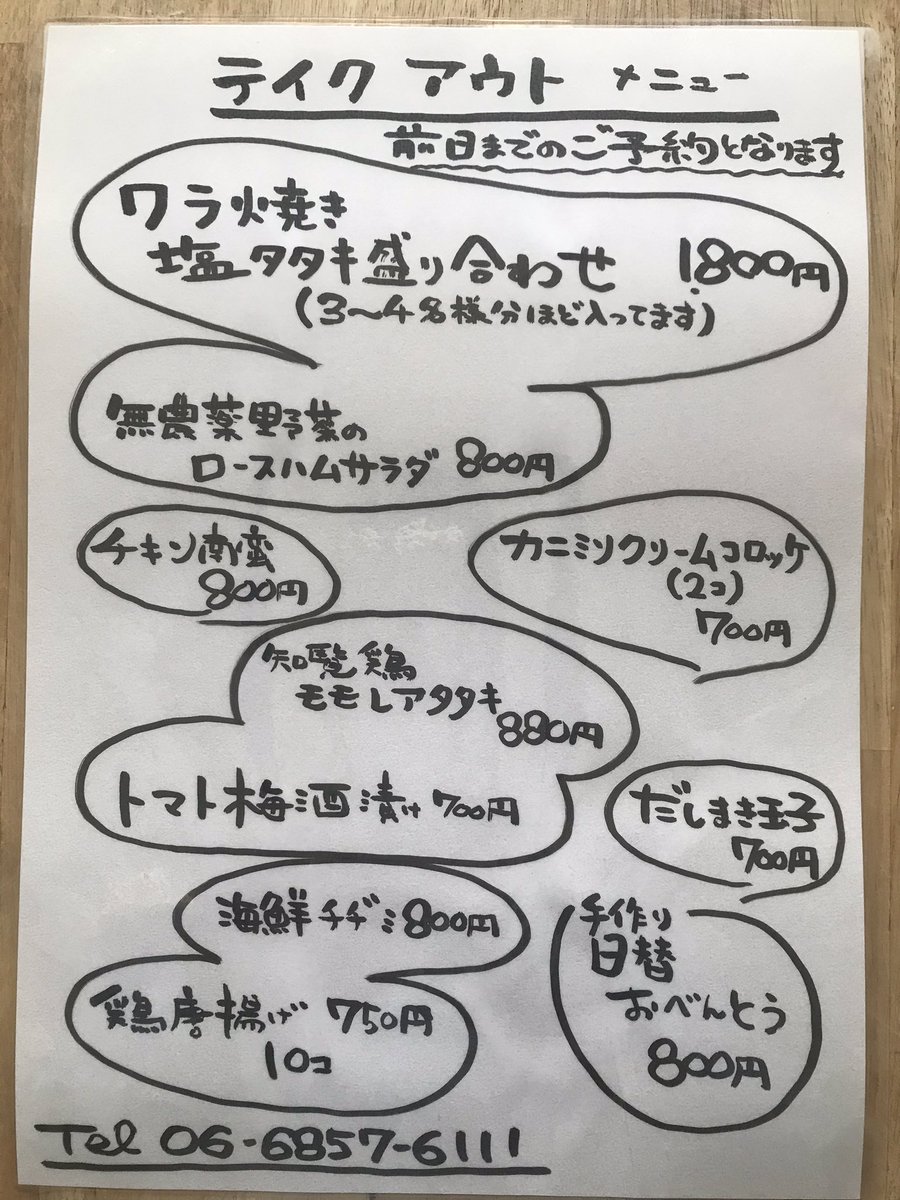 テイク アウト メニュー
前日までのご予約となります
ワラ焼き
塩タタキ盛り合わせ 1.800円
(3〜4名様分ほど入ってます)
無農薬野菜の
ロースハムサラダ 800円
チキン南蛮
800円
カニミソクリームコロッケ
(2コ)
700円
知覧鶏
モモレアタタキ
880円
トマト梅酒漬け 700円
だしまき玉子
700円
海鮮チヂミ 800円
鶏唐揚げ 750円
10コ
手作り
日替
おべんとう
800円
Tel 06-6857-6111